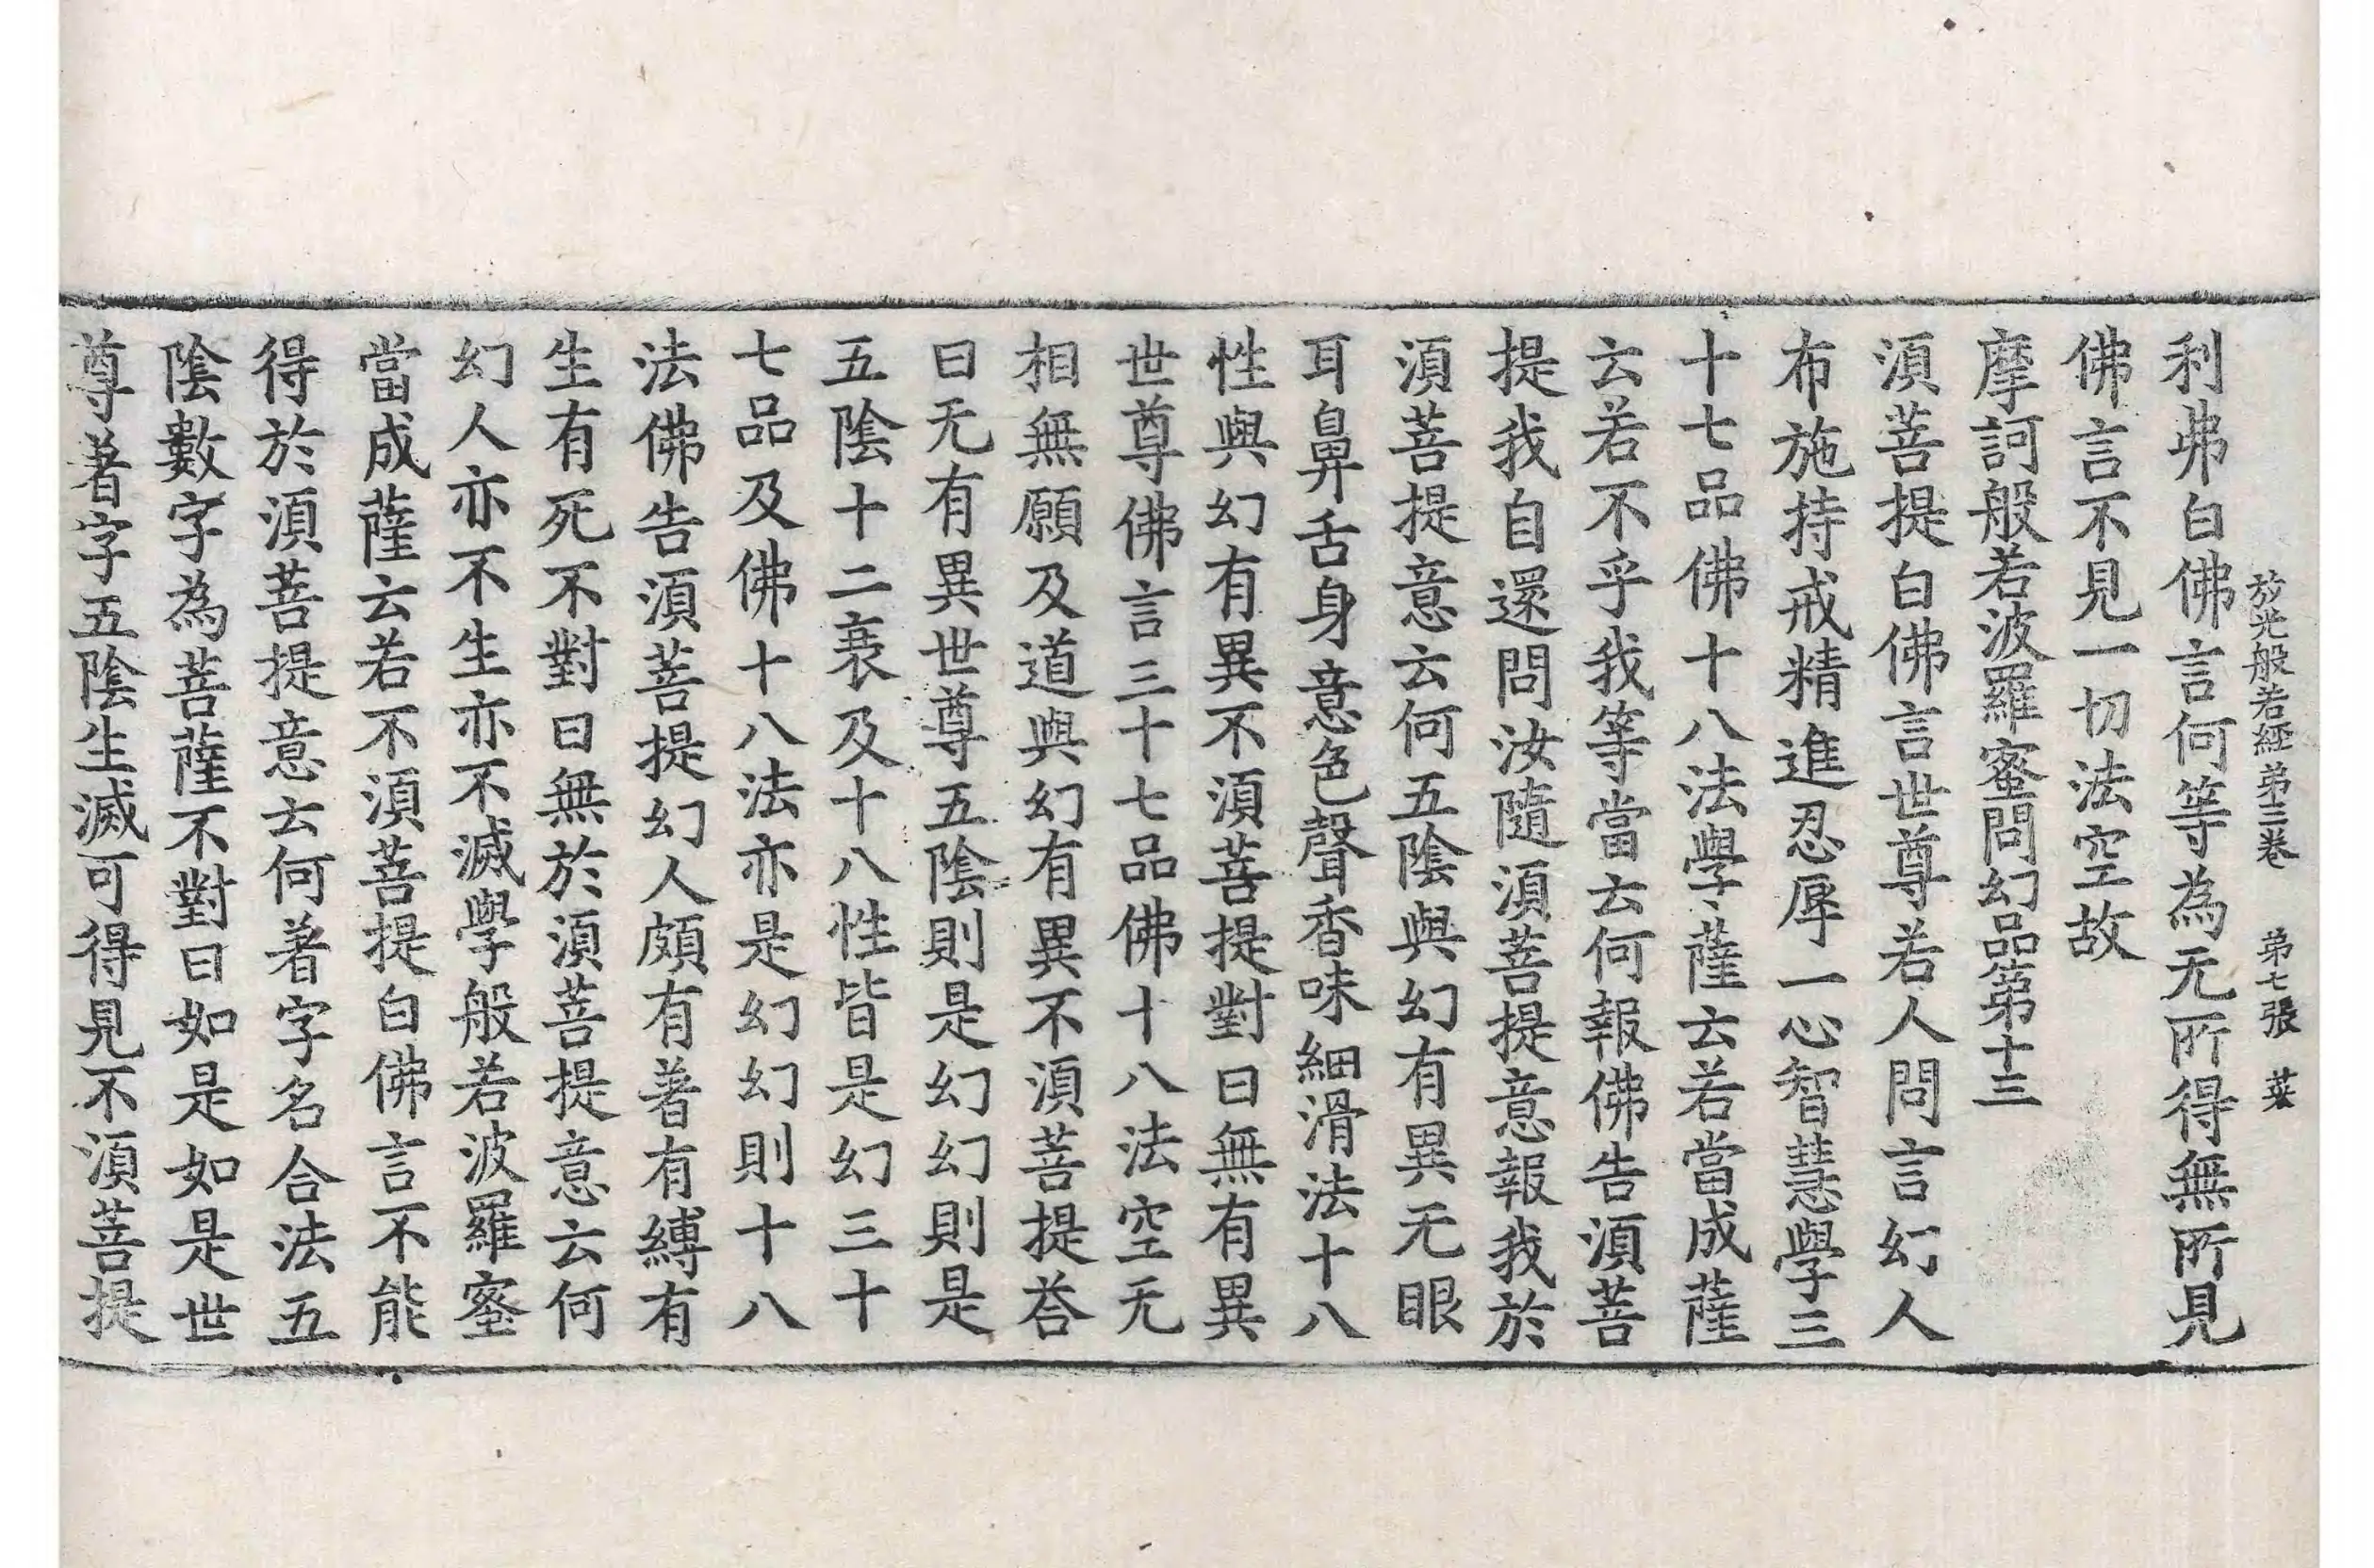 放光般若經第三卷 第七張 菜
利弗白佛言何等為无所得無所見
佛言不見一切法空故
摩訶般若波羅蜜問幻品第十三
須菩提白佛言世尊若人問言幻人
布施持戒精進忍辱一心智慧學三
十七品佛十八法學薩云若當成薩
云若不乎我等當云何報佛告須菩
提我自還問汝隨須菩提意報我於
須菩提意云何五陰與幻有異无眼
耳鼻舌身意色聲香味細滑法十八
性與幻有異不須菩提對曰無有異
世尊佛言三十七品佛十八法空无
相無願及道與幻有異不須菩提荅
曰无有異世尊五陰則是幻幻則是
五陰十二衰及十八性皆是幻三十
七品及佛十八法亦是幻幻則十八
法佛告須菩提幻人頗有著有縛有
生有死不對曰無於須菩提意云何
幻人亦不生亦不滅學般若波羅蜜
當成薩云若不須菩提白佛言不能
得於須菩提意云何著字名合法五
陰數字為菩薩不對曰如是如是世
尊著字五陰生滅可得見不須菩提